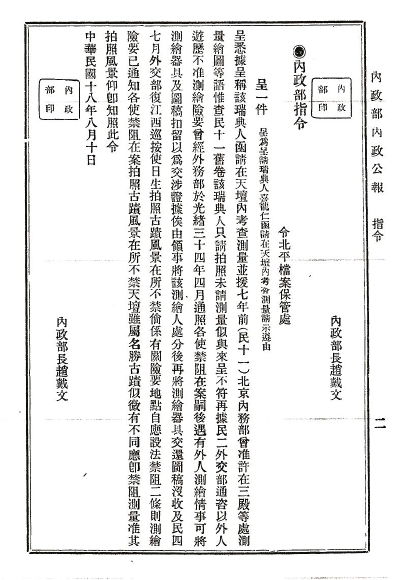 內政部內政公報 指令 二
內政部印
內政部長趙戴文
●內政部指令
令北平檔案保管處
呈一件 呈為呈請瑞典人喜龍仁函請在天壇內考查測量請示遵由
呈悉據呈稱該瑞典人函請在天壇內考查測量並援七年前(民十一)北京內務部曾准許在三殿等處測
量繪圖等語惟查民十一舊卷該瑞典人只請拍照未請測量似與來呈不符再據民二外交部通咨以外人
遊歷不准測繪險要曾經外務部於光緒三十四年四月通照各使禁阻在案嗣後遇有外人測繪情事可將
測繪器具及圖稿扣留以為交涉證據俟由領事將該測繪人處分後再將測繪器具交還圖稿沒收及民四
七月外交部復江西巡按使日生拍照古蹟風景在所不禁倘係有關險要地點自應設法禁阻二條則測繪
險要已通知各使禁阻在案拍照古蹟風景在所不禁天壇雖屬名勝古蹟似微有不同應卽禁阻測量准其
拍照風景仰卽知照此令
中華民國十八年八月十日
內政部印
內政部長趙戴文